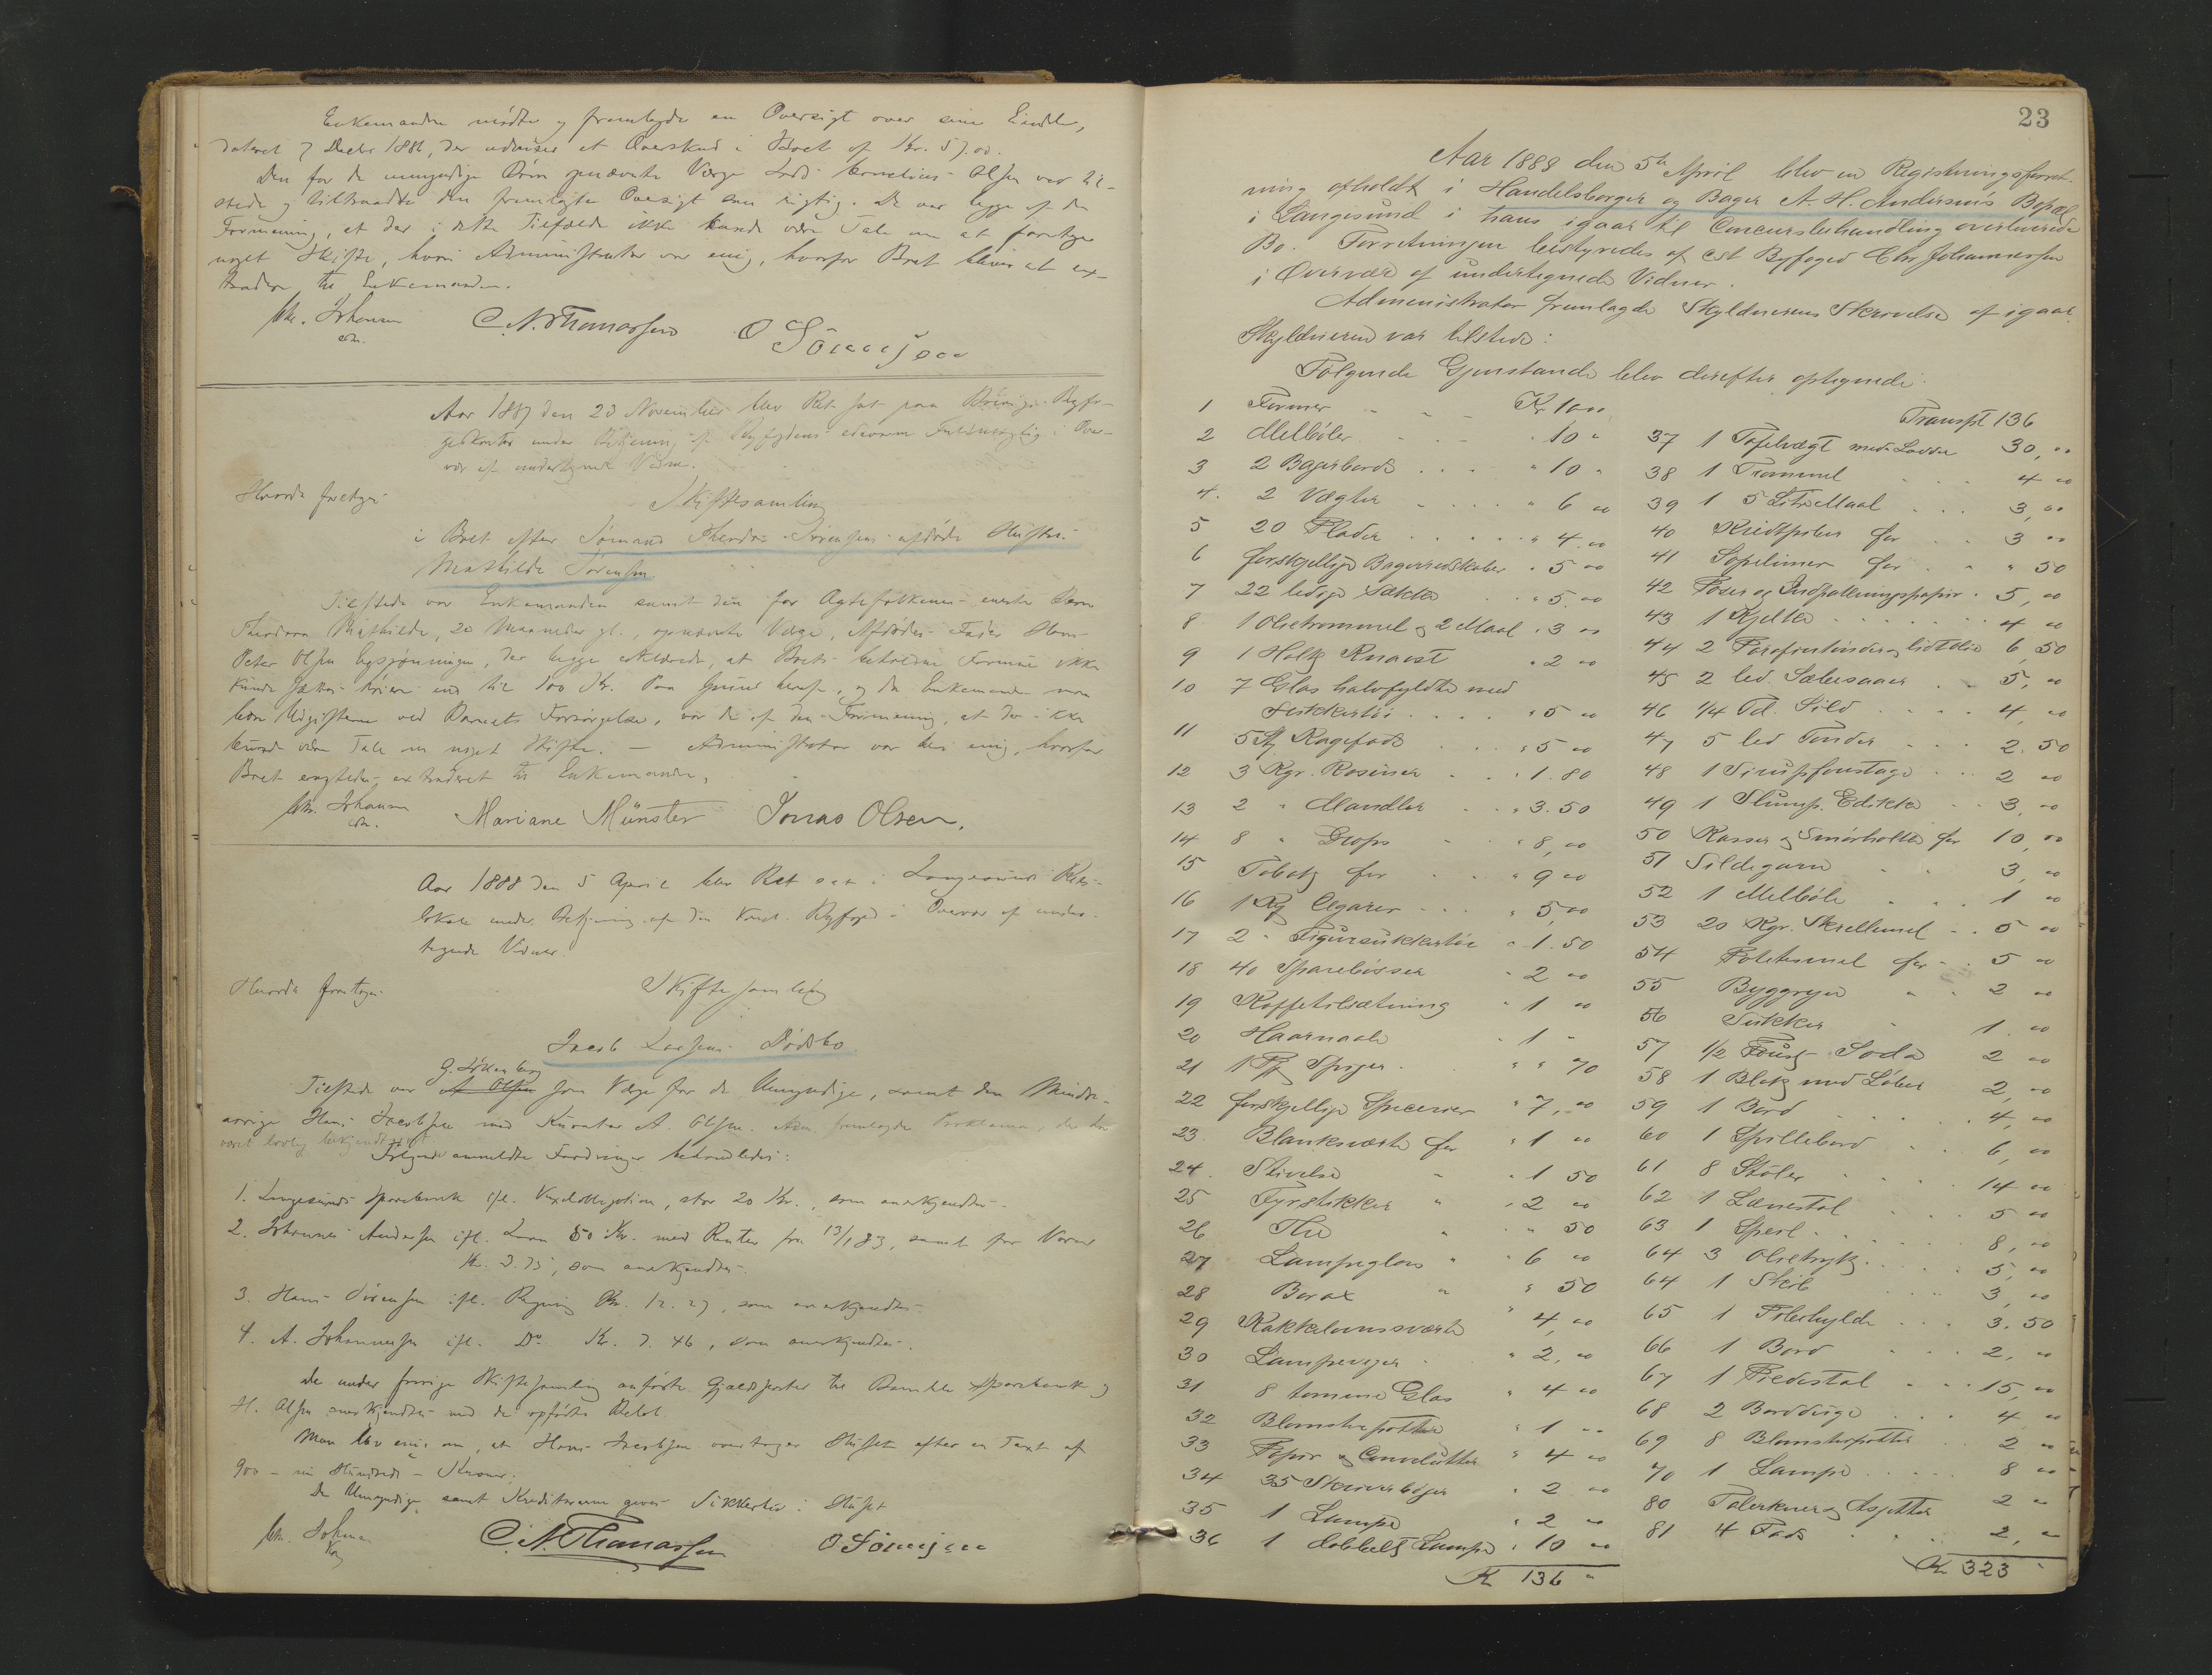 Enkemanden mødte og fremlagde en Oversigt over sine Eiendele,
dateret 7 Decbr 1886, der udviser et Overskud i Boet af Kr. 57.00.
Den for de umyndige Børn opnævnte Værge Cornelius Olsen var til-
stede og tiltraadte den fremlagte Oversigt som rigtig. De var begge af den
Formening, at der i dette Tilfælde ikke kunde være Tale om at foretage
noget Skifte, hvori Administrator var enig, hvorfor Boet blev at ex-
tradere til Enkemanden.
Chr. Johansen
cst.
C. N. Thomassen
O Sørensen
Aar 1887 den 23 November blev Ret sat paa Brevigs Byfo-
gedkontor under Betjening af Byfogdens edsvorne Fuldmægtig i Over-
vær af undertegnede Vidne.
Hvorda foretoges
Skiftesamling
i Boet efter Sømand Theodor Sørensens afdøde Hustru
Mathilde Sørensen
Tilstede var Enkemanden samt den for Ægtefolkenes eneste Barn
Theodora Mathilde, 20 Maaneder gl., opnævnte Værge, Afdødes Fader Hans
Peter Olsen, der begge erklærede, at Boets beholdne Formue ikke
kunde sættes høiere end til 100 Kr. Paa Grund heraf, og da Enkemanden maa
bære Udgifterne ved Barnets Forsørgelse, var de af den Formening, at der ikke
kunde være Tale om noget Skifte. — Administrator var heri enig, hvorfor
Boet ansaaes extraderet til Enkemanden.
Chr. Johansen
cst.
Mariane Münster
Jonas Olsen.
Aar 1888 den 5 April blev Ret sat i Langesunds Rets-
lokale under Betjening af den konst. Byfoged i Overvær af under-
tegnede Vidner.
Hvorda foretoges
Skiftesamling
Jacob Larsens Dødsbo
G. Løkenberg
Tilstede var A Olsen som Værge for de Umyndige, samt den Mindre-
aarige Hans Jacobsen med Kurator A. Olsen. Adm. fremlagde Proklama, der har
været lovlig bekjendtgjort
Følgende anmeldte Fordringer behandledes:
1. Langesunds Sparebank ifl. Vexelobligation, stor 20 Kr., som anerkjendtes
2. Johannes Andersen ifl. Laan 50 Kr. med Renter fra 13/1 83, samt for Varer
Kr. 3.75, som anerkjendtes.
3. Hans Sørensen ifl. Regning Kr. 12.27, som anerkjendtes
4. A. Johannessen ifl. Do Kr. 7.46, som anerkjendtes.
De under forrige Skiftesamling anførte Gjældsposter til Bamble Sparebank og
H. Olsen anerkjendtes med de opførte Beløb.
Man blev enig om, at Hans Jacobsen overtager Huset efter en Taxt af
900 – ni Hundrede – Kroner.
De Umyndige samt Kreditorerne gives Sikkerhed i Huset
Chr. Johansen
Kst
C. N. Thomassen
O Sørensen
23
Aar 1888 den 5te April blev en Registreringsforret-
ning afholdt i Handelsborger og Bager A. H. Andersens Bopæl
i Langesund i hans igaar til Concursbehandling overleverede
Bo. Forretningen bestyredes af cst Byfoged Chr Johannessen
i Overvær af undertegnede Vidner.
Administrator fremlagde Skyldnerens Skrivelse af igaar.
Skyldneren var tilstede:
Følgende Gjenstande blev derefter optegnede:
1 Former Kr 10 00
2 Melbøler " 10 "
3 2 Bagerborde " 10 "
4. 2 Vægter " 6 00
5 20 Plader " 4.00
6 forskjellige Bagerredskaber " 5 00
7 22 ledige Sække " 5.00
8 1 Olietrommel og 2 Maal " 3 00
9 1 Holk Knaost " 2 00
10 7 Glas halvfyldte med
Sukkertøi " 5 00
11 5 Stk Kagefade " 5 00
12 3 Kgr. Rosiner " 1.80
13 2 " Mandler " 3.50
14 8 " Drops " 8,00
15 Tobak for " 9 00
16 1 Kg Cigarer " 5,00
17 2 " Figursukkertøi " 1.50
18 40 Sparebøsser " 2 00
19 Kaffetilsætning " 1 00
20 Haarnaale " 1 "
21 1 Pk Spiger " " 70
22 forskjellige Specerier " 7,00
23. Blanksværte for " 1 00
24. Stivelse " " 1 50
25 Fyrstikker " " 2 00
26 The " " 50
27 Lampeglas " " 6 00
28 Borax " " 50
29 Kakkelovnssværte " 4,00
30 Lampeveger " 2,00
31 8 tomme Glas " 4 00
32 Blomsterpotter " 1 "
33 Papir og Convolutter " 4 00
34 35 Skrivebøger " 2 00
35 1 Lampe " 2 "
36 1 dobbelt Lampe " 10 00
Kr 136 "
Transpt 136
37 1 Tafelvægt med Lodder 30,00
38 1 Trommel 4 00
39 1 5 Liter Maal 3,00
40 Kridtpiber for 3 00
41 Sopelimer for " 50
42 Poser og Indpakningspapir 5,00
43 1 Kjelke 4 00
44 2 Parafintønder og lidt Olie 6,50
45 2 led. Sæbesaaer 5,00
46 1/4 Td. Sild 4,00
47 5 led Tønder 2.50
48 1 Sirupsfoustage 2 00
49 1 Slump. Edikke 3,00
50 Kasser og Smørholke for 10,00
51 Sildegarn 3,00
52 1 Melbøle 1 00
53 20 Kgr. Skrellemel 5 00
54 Potetesmel for 5 00
55 Byggryn " 2 00
56 Sukker " 1.00
57 1/2 Foust. Soda 2 00
58 1 Blok med Løber 2,00
59 1 Bord 4,00
60 1 Spillebord 6,00
61 8 Stoler 14 00
62 1 Lænestol 5 00
63 1 Speil 8,00
64 3 Olietryk 5,00
64 1 Skib 3,00
65 1 Pibehylde 3.50
66 1 Bord 2,00
67 1 Piedestal 15,00
68 2 Bordduge 4 00
69 8 Blomsterpotter 2 00
70 1 Lampe 8 00
80 Talerkner og Asjetter 2 "
81 4 Fade 2, "
Kr 323 "